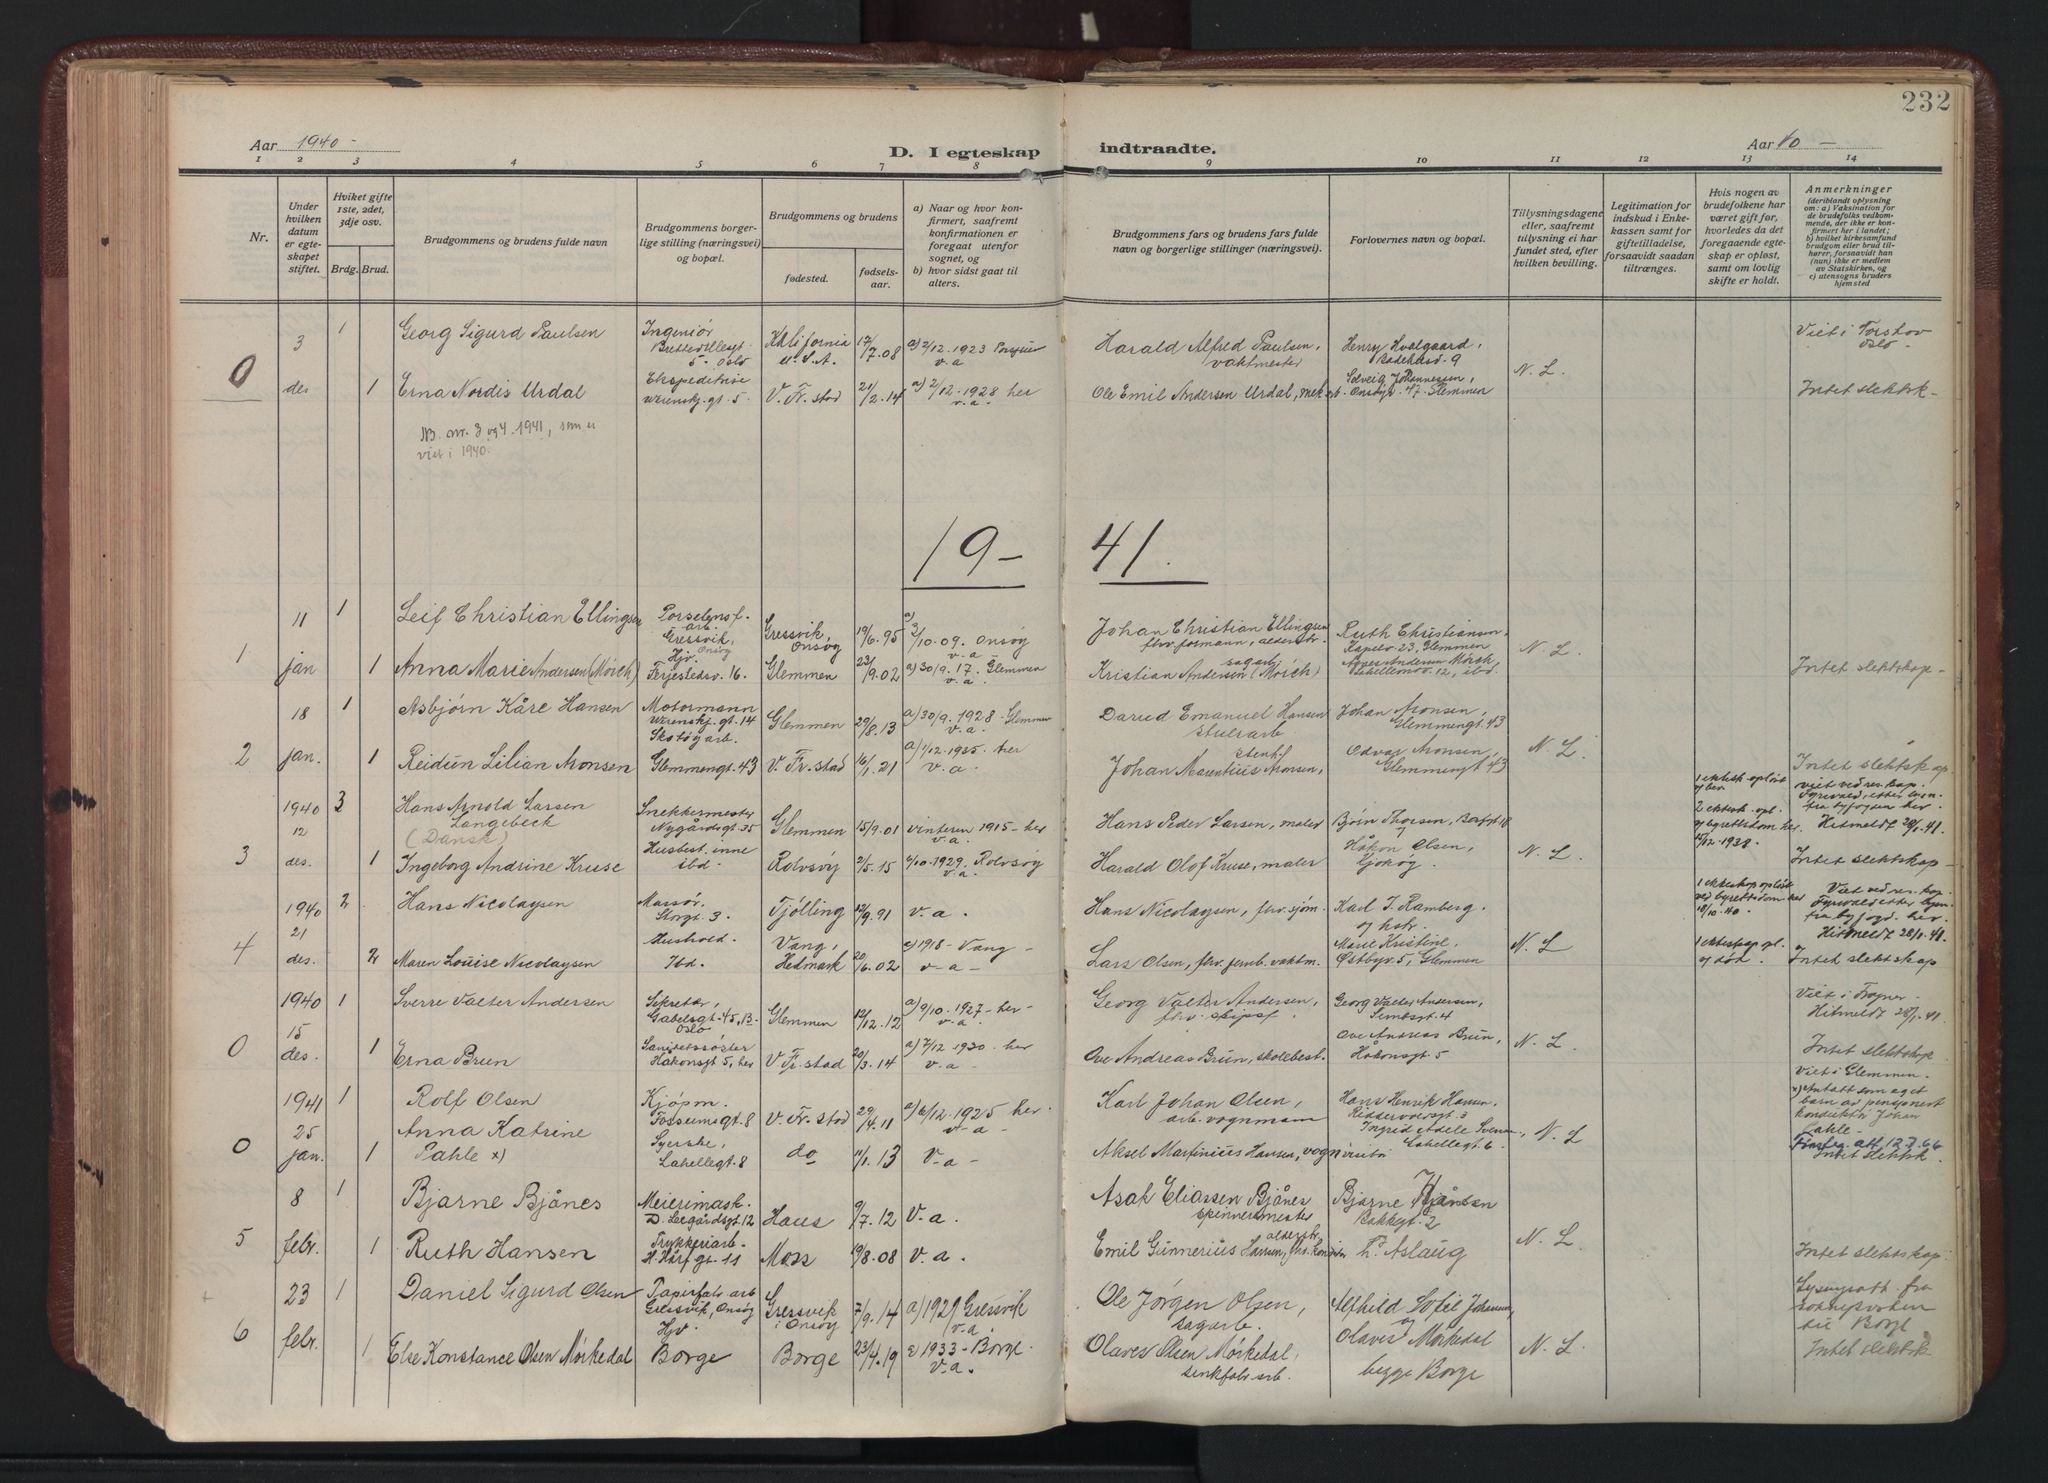 232
Aar 1940 -
D. I egteskap indtraadte.
Aar 40 -
1 2 3 4 5 6 7 8 9 10 11 12 13 14
Nr.
Under hvilken datum er egteskapet stiftet.
Hviket gifte 1ste, 2det, 3dje osv.
Brdg. Brud.
Brudgommens og brudens fulde navn
Brudgommens borgerlige stilling (næringsvei) og bopæl.
Brudgommens og brudens
fødested.
fødselsaar.
a) Naar og hvor konfirmert, saafremt konfirmationen er foregaat utenfor sognet, og
b) hvor sidst gaat til alters.
Brudgommens fars og brudens fars fulde navn og borgerlige stillinger (næringsvei).
Forlovernes navn og bopæl.
Tillysningsdagene eller, saafremt tillysning ei har fundet sted, efter hvilken bevilling.
Legitimation for indskud i Enkekassen samt for giftetilladelse, forsaavidt saadan tiltrænges.
Hvis nogen av brudefolkene har været gift før, hvorledes da det foregaaende egteskap er opløst, samt om lovlig skifte er holdt.
Anmerkninger
(deriblandt oplysning om: a) Vaksination for de brudefolks vedkommende, der ikke er konfirmert her i landet; b) hvilket kirkesamfund brudgom eller brud tilhører, forsaavidt han (hun) ikke er medlem av Statskirken, og c) utensogns bruders hjemsted
0
3 des
1 Georg Sigurd Paulsen
Ingeniør
5. Oslo
Kalifornia U.S.A.
17/7.08
a) 2/12.1923
v.a
Harald Alfred Paulsen, vaktmester
Henry Hvalgaard,
N.L.
Viet i Torshov Oslo -
1 Erna Nordis Urdal
Ekspeditrise
Werenskj.gt. 5.
V. Fr.stad
21/2.14
a) 2/12.1928 her
v.a.
Ole Emil Andersen Urdal,
Solveig Johannessen,
Onsøyv. 47. Glemmen
Intet slektsk -
NB. nr. 3 og 4 1941, som er
viet i 1940.
19- 41.
1
11 jan
1 Leif Christian Ellingsen
Porselensf. arb
Gressvik, Onsøy
Gressvik, Onsøy
19/6.95
a) 3/10-09. Onsøy
v.a -
Johan Christian Ellingsen
fhv. formann,
Ruth Christiansen
Kapelv. 23, Glemmen
N.L.
1 Anna Marie Andersen (Mörch)
Hjv.
Ferjestedsv. 16.
Glemmen
23/9.02
a) 30/9.17. Glemmen
v.a.
Kristian Andersen (Mörch) sagarb
Intet slektskap -
2
18 jan.
1 Asbjørn Kåre Hansen
Motormann
Werenskj.gt. 14
Glemmen
29/8.13
a) 30/9.1928 - Glemmen
v.a.
David Emanuel Hansen
Johan Aronsen,
Glemmengt. 43
N.L.
1 Reidun Lilian Aronsen
Skotøyarb.
Glemmengt. 43
V. Fr.stad
16/1.21
a) 1/12.1935. her
v.a.
Johan Marentius Aronsen,
Odvar Aronsen,
Glemmengt 43
Intet slektskap.
3
1940 12 des.
3 Hans Arnold Larsen Langebeck
(Dansk)
Snekkermester
Nygårdsgt. 35
Glemmen
15/9.01
vinteren 1915 - her
v.a.
Hans Peder Larsen, maler
Bjørn Thorsen,
N.L.
2 ektesk. opl.
1938.
Hitmeldt 28/1.41.
1 Ingeborg Andrine Kruse
Husbest. inne
ibd.
Rolvsøy
2/5.15
10.1929. Rolvsøy
v.a.
Harald Olof Kruse, maler
Håkon Olsen,
Intet slektskap -
4
1940 21 des.
2 Hans Nicolaysen
Massør.
Storgt. 3.
Tjølling
12/9.91
v.a.
Hans Nicolaysen, fhv. sjøm.
Karl J. Ramberg.
og hstr.
N.L.
1 ekteskap opløst
ved byrettsdom her
18/10.40.
Hitmeldt 28/1.41.
2 Maren Louise Nicolaysen
Hushold.
Ibd.
Vang, Hedmark
20/6.02
a) 1918 - Vang -
v-a-
Lars Olsen,
Marie Kristine,
Østbyv. 5, Glemmen
1 ektesk. opl.
v/død.
Intet slektskap
0
1940 15 des.
1 Sverre Valter Andersen
Sekretær,
Gabelsgt. 45, B
Oslo
Glemmen
12/12.12
a) 9/10.1927 - her -
v.a -
Georg Valter Andersen,
fhv. skipsf.
Georg Valter Andersen,
N.L.
Viet i Frogner -
Hitmeldt 28/1.41
1 Erna Brun
Sanitetssøster
Håkonsgt 5, her
V. Fr. stad
20/3.14
a) 7/12 1930. her
v.a.
Ove Andreas Brun, skolebest.
Ove Andreas Brun,
Håkonsgt. 5
Intet slektskap
0
1941 25 jan.
1 Rolf Olsen
Kjøpm.
Fossumsgt. 8
V. Fr. stad
29/4.11
a) 6/12.1925 her
v-a-
Karl Johan Olsen,
arb. vognmann
Hans Henrik Hansen,
Riddervoldsgt. 3
N.L
Viet i Glemmen.
x) Antatt som eget
barn av pensjonert
konduktør Johan
Pahle -
1 Anna Katrine Pahle x)
Syerske,
Lahellegt. 8
do
11/1.13
v-a-
Aksel Martinius Hansen,
Ingrid Adele
Lahellegt. 6.
12.7.66
Intet slektsk.
5
8 febr.
1 Bjarne Bjånes
Meierimask.
D. Leegårdsgt. 12
Haus
9/7.12
V.a.
Asak Eliassen Bjånes
spinnermester
Bjarne
Bakkegt. 2
N.L.
1 Ruth Hansen
Trykkeriarb.
Moss
19/8.08
v.a.
Emil Gunnerius Hansen,
Aslaug
Intet slektskap.
6
23 febr.
1 Daniel Sigurd Olsen
Papirfabr. arb
Gressvik, Onsøy
Gressvik i Onsøy
7/9.14
a) 1929 Gressvik
v.a.
Ole Jørgen Olsen,
sagarb.
Alfhild Sofie Johansen,
og
N.L.
til Borge
1 Else Konstance Olsen Mørkedal
Hjv.
Borge
Borge
23/4.19
a) 1933 - Borge.
v.a.
Olaves Olsen Mørkedal,
sinkfabr. arb.
Olaves Mørkedal
begge Borge
Intet slektsk